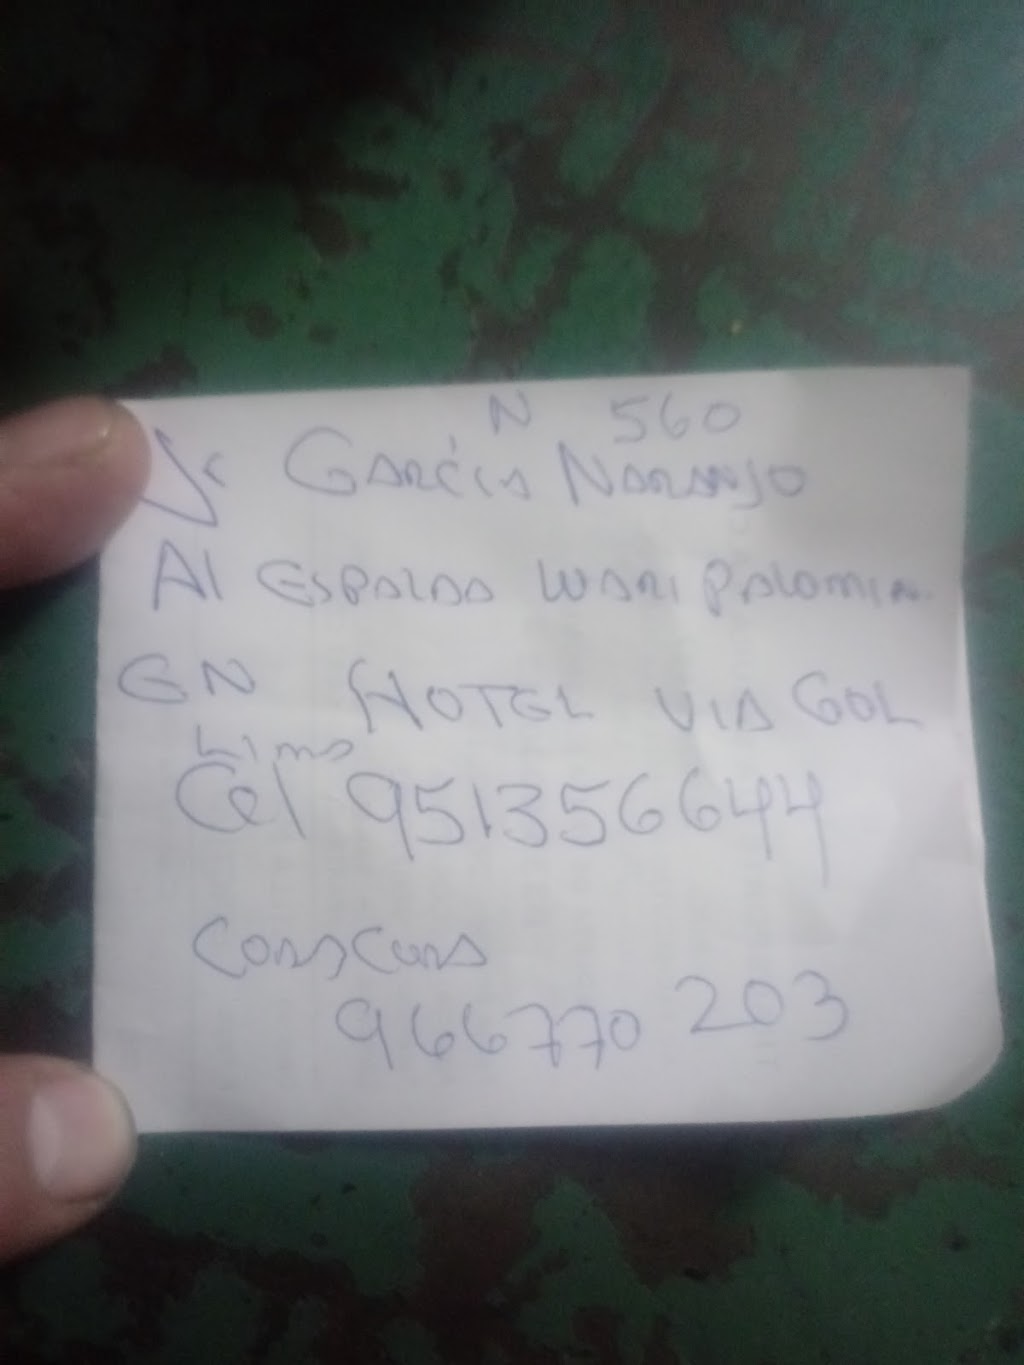 N 560
Jr García Naranjo
Al ESPALDA WARI PALOMIN.
EN HOTEL VIA GOL
Lima
Cel 951356644
966770 203